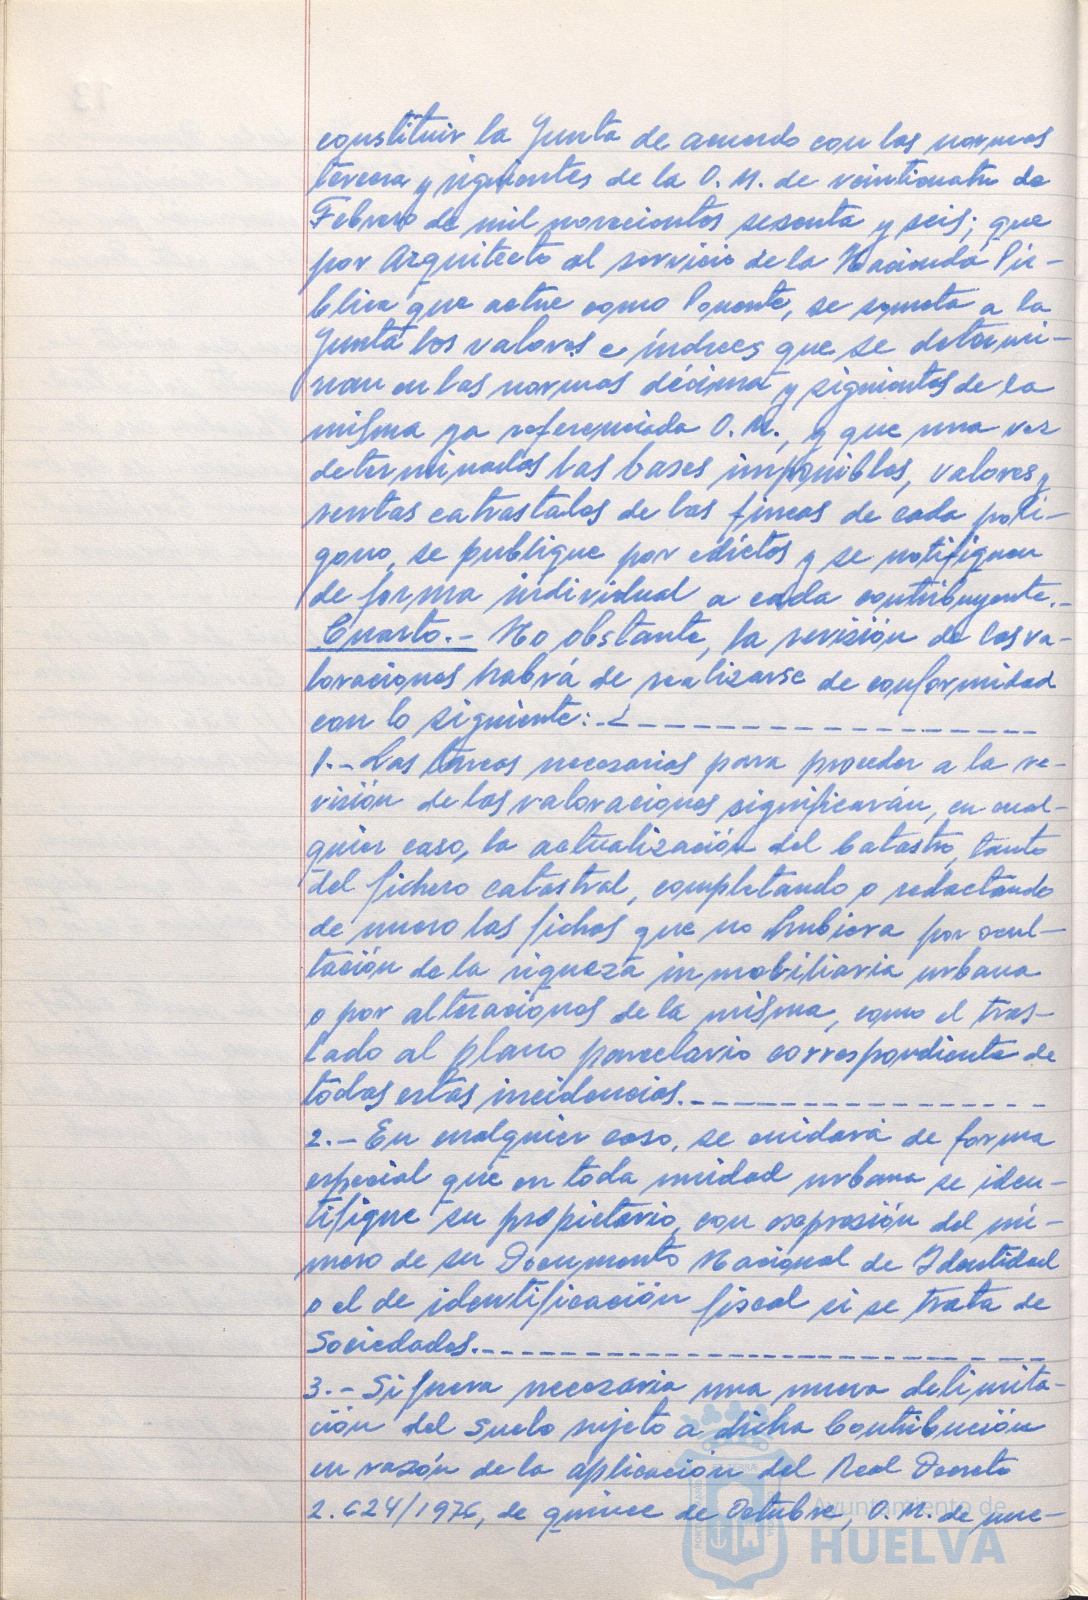 constituir la Junta de acuerdo con las normas
tercera y siguientes de la O. M. de veinticuatro de
Febrero de mil novecientos sesenta y seis; que
por Arquitecto al servicio de la Hacienda Pú-
blica que actue como Ponente, se someta a la
Junta los valores e índices que se determi-
nan en las normas décima y siguientes de la
misma ya referenciada O. M., y que una vez
determinados las bases imponibles, valores y
rentas catrastales de las fincas de cada polí-
gono, se publique por edictos y se notifiquen
de forma individual a cada contribuyente.-
Cuarto.- No obstante, la revisión de las va-
loraciones habrá de realizarse de conformidad
con lo siguiente:
1.- Las tareas necesarias para proceder a la re-
visión de las valoraciones significarán, en cual-
quier caso, la actualización del Catastro, tanto
del fichero catastral, completando o redactando
de nuevo las fichas que no hubiera por ocul-
tación de la riqueza inmobiliaria urbana
o por alteraciones de la misma, como el tras-
lado al plano parcelario correspondiente de
todas estas incidencias.
2.- En cualquier caso, se cuidará de forma
especial que en toda unidad urbana se iden-
tifique su propietario, con expresión del nú-
mero de su Documento Nacional de Identidad
o el de identificación fiscal si se trata de
Sociedades.
3.- Si fuera necesaria una nueva delimita-
ción del suelo sujeto a dicha Contribución
en razón de la aplicación del Real Decreto
2.624/1976, de quince de Octubre, O. M. de nue-
Ayuntamiento de
HUELVA